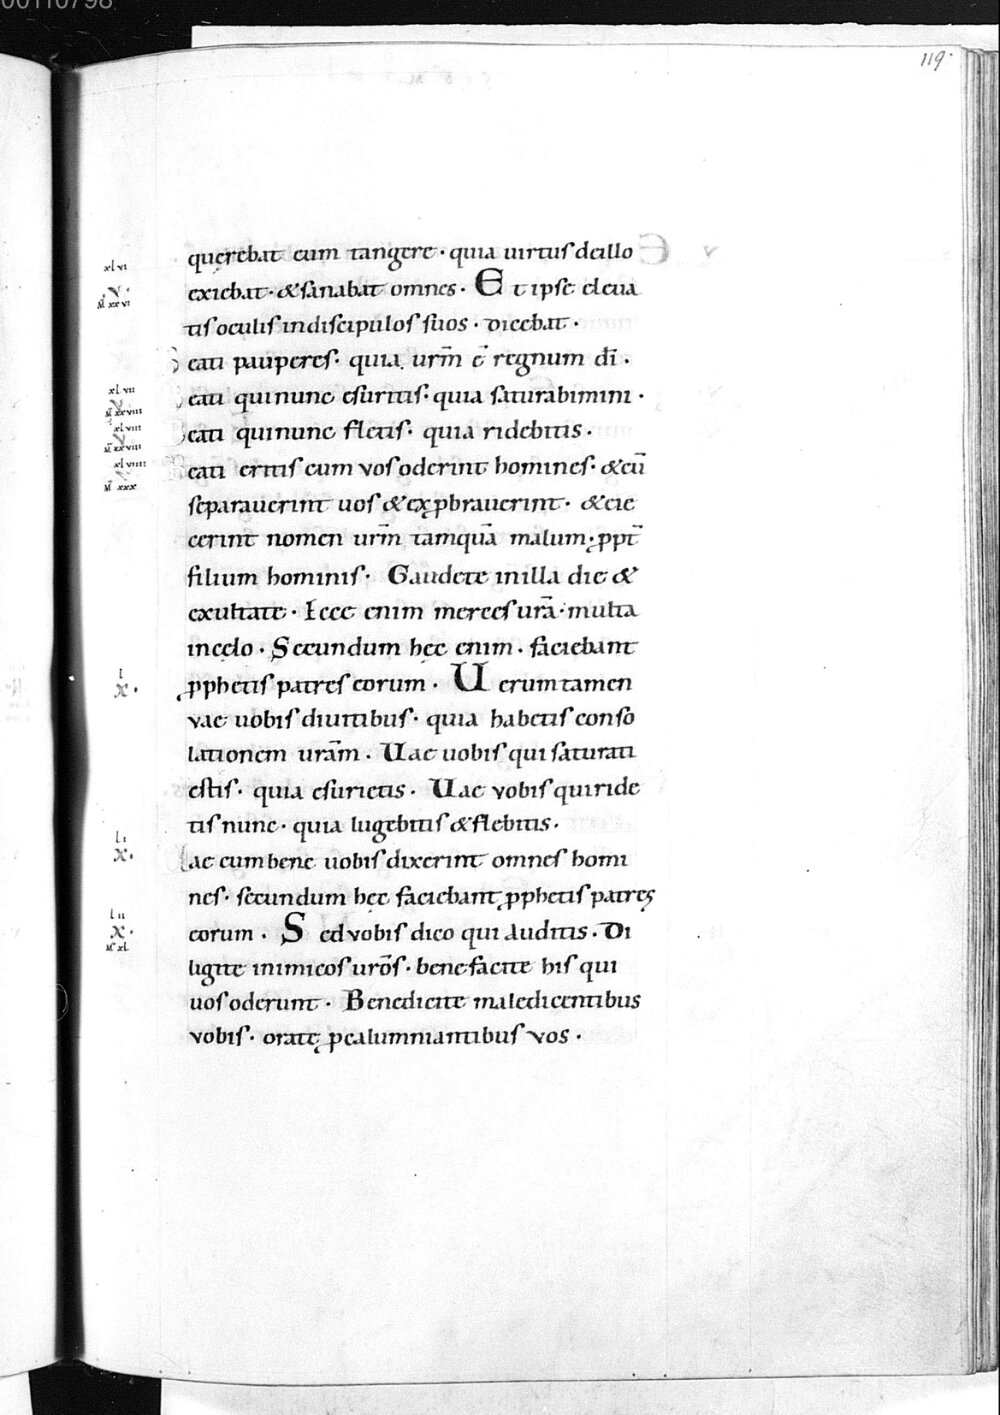 00110798
119
quęrebat eum tangere · quia uirtus deillo
xl vi
exiebat · &sanabat omnes · Et ipse eleua
V
M̄ xxvi
tis oculis indiscipulos suos · dicebat ·
eati pauperes · quia urm̄ ē regnum dī ·
xl vii
eati quinunc esuritis · quia saturabimini ·
V
M̄ xxviii
xl viii
eati quinunc fletis · quia ridebitis ·
V
M̄ xxviii
xl viiii
eati eritis cum vos oderint homines · &cū
V
M̄ xxx
separauerint uos &exꝓbrauerint · &eie
cerint nomen urm̄ tamquā malum · ꝓpt̄
filium hominis · Gaudete inilla die &
exultate · Ecce enim merces urā · multa
incęlo · Secundum hęc enim · faciebant
l
X ·
ꝓphetis patres eorum · Uerumtamen
vae uobis diuitibus · quia habetis conso
lationem urām · Uae uobis qui saturati
estis · quia esurietis · Uae vobis quiride
tis nunc · quia lugebitis &flebitis ·
li
X ·
ae cum bene uobis dixerint omnes homi
nes · secundum hęc faciebant ꝓphetis patres
lii
X ·
eorum · Sed vobis dico qui auditis · Di
M̄ xl
ligite inimicos urōs · benefacite his qui
uos oderunt · Benedicite maledicentibus
vobis · orate ꝓcalumniantibus vos ·